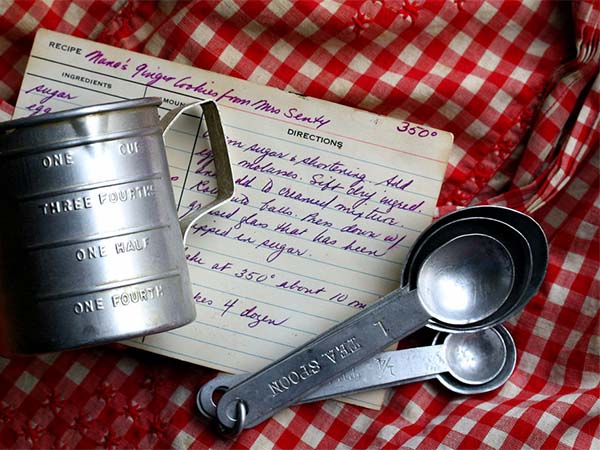 RECIPE Nana's Ginger Cookies from Mrs Senty 350°
INGREDIENTS AMOUN DIRECTIONS
sugar
egg
sugar & shortening Add
molasses. Sift dry ingred.
& add to creamed mixture.
Roll into balls. Press down w/
glass that has been
pped in sugar.
ke at 350° about 10 m
kes 4 dozen
ONE CUP
THREE FOURTHS
ONE HALF
ONE FOURTH
1 TEASPOON
1/4